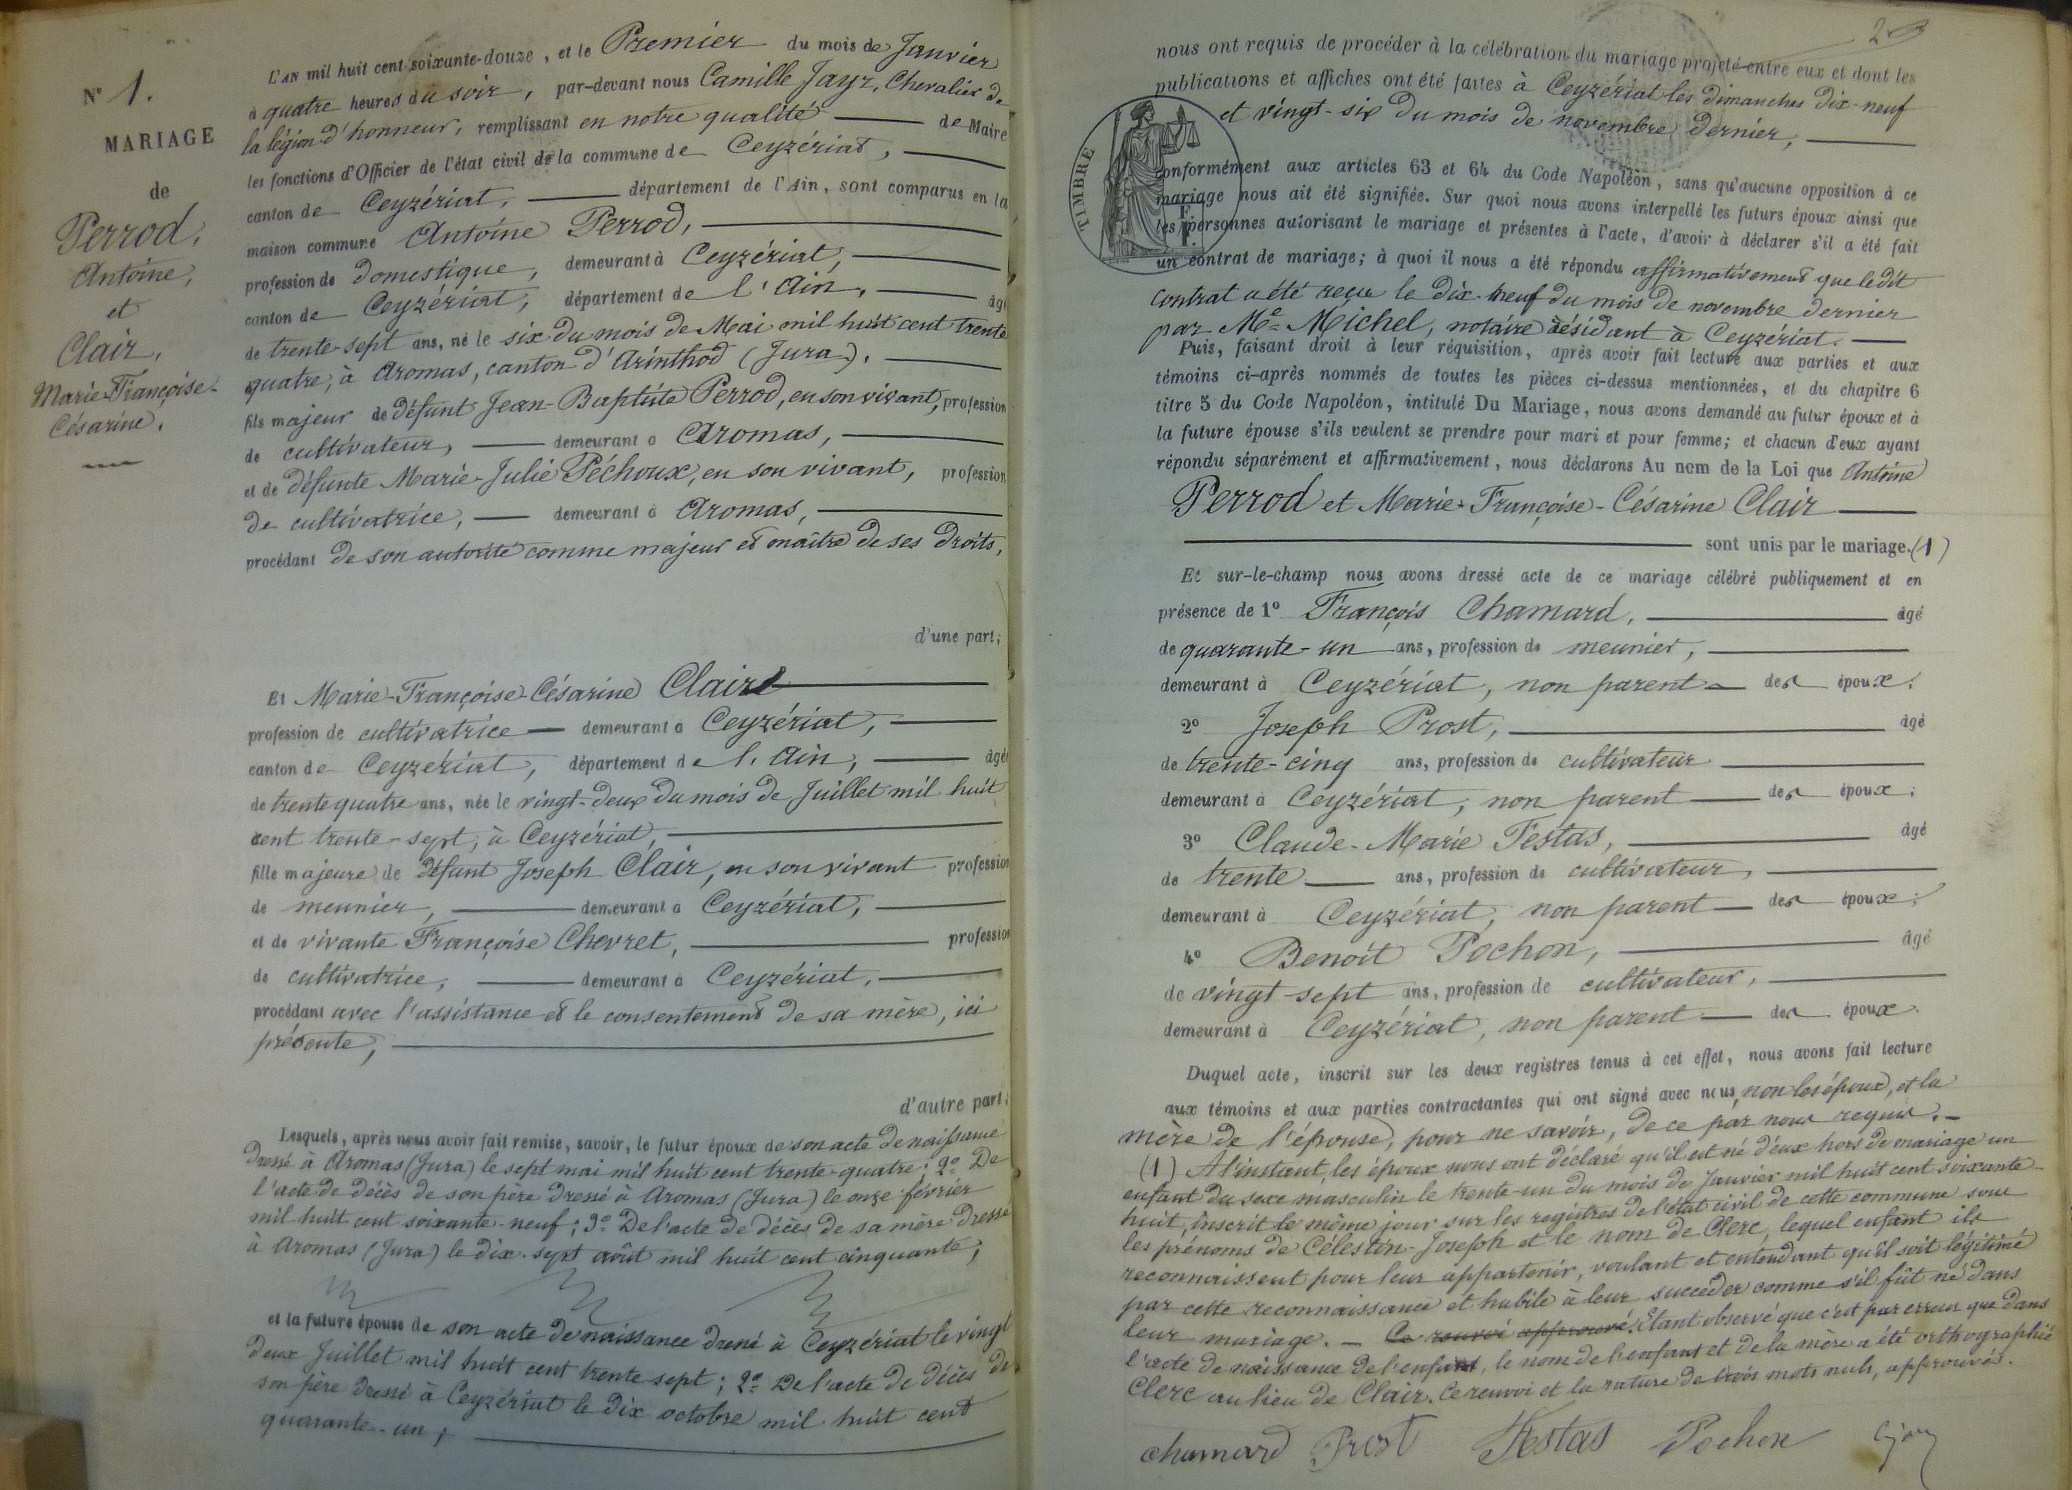 N° 1.
MARIAGE
de
Perrod,
Antoine,
et
Clair,
Marie-Françoise-
Césarine.
L'AN mil huit cent soixante-douze, et le Premier du mois de Janvier
à quatre heures du soir, par-devant nous Camille Jayr, Chevalier de
la légion d'honneur, remplissant en notre qualité de Maire
les fonctions d'Officier de l'état civil de la commune de Ceyzériat,
canton de Ceyzériat, département de l'Ain, sont comparus en la
maison commune Antoine Perrod,
profession de domestique, demeurant à Ceyzériat,
canton de Ceyzériat, département de l'Ain, âgé
de trente-sept ans, né le six du mois de Mai mil huit cent trente
quatre, à Aromas, canton d'Arinthod (Jura).
fils majeur de défunt Jean-Baptiste Perrod, en son vivant, profession
de cultivateur, demeurant à Aromas,
et de défunte Marie-Julie Péchoux, en son vivant, profession
de cultivatrice, demeurant à Aromas,
procédant de son autorité comme majeur et maître de ses droits,
d'une part;
Et Marie-Françoise-Césarine Clair
profession de cultivatrice demeurant à Ceyzériat,
canton de Ceyzériat, département de l'Ain, âgé
de trente quatre ans, née le vingt-deux du mois de Juillet mil huit
cent trente-sept, à Ceyzériat,
fille majeure de défunt Joseph Clair, en son vivant profession
de meunier, demeurant à Ceyzériat,
et de vivante Françoise Chevret, profession
de cultivatrice, demeurant à Ceyzériat,
procédant avec l'assistance et le consentement de sa mère, ici
présente,
d'autre part;
Lesquels, après nous avoir fait remise, savoir, le futur époux de son acte de naissance
dressé à Aromas (Jura) le sept mai mil huit cent trente-quatre; 2° De
l'acte de décès de son père dressé à Aromas (Jura) le onze février
mil huit cent soixante-neuf; 3° De l'acte de décès de sa mère dressé
à Aromas (Jura) le dix-sept août mil huit cent cinquante;
et la future épouse de son acte de naissance dressé à Ceyzériat le vingt
deux Juillet mil huit cent trente sept; 2° De l'acte de décès de
son père dressé à Ceyzériat le dix octobre mil huit cent
quarante-un,
2
nous ont requis de procéder à la célébration du mariage projeté entre eux et dont les
publications et affiches ont été faites à Ceyzériat les dimanches dix-neuf
et vingt-six du mois de novembre dernier,
TIMBRE
conformément aux articles 63 et 64 du Code Napoléon, sans qu'aucune opposition à ce
mariage nous ait été signifiée. Sur quoi nous avons interpellé les futurs époux ainsi que
les personnes autorisant le mariage et présentes à l'acte, d'avoir à déclarer s'il a été fait
un contrat de mariage; à quoi il nous a été répondu affirmativement que ledit
contrat a été reçu le dix-neuf du mois de novembre dernier
par Me Michel, notaire résidant à Ceyzériat.
Puis, faisant droit à leur réquisition, après avoir fait lecture aux parties et aux
témoins ci-après nommés de toutes les pièces ci-dessus mentionnées, et du chapitre 6
titre 5 du Code Napoléon, intitulé Du Mariage, nous avons demandé au futur époux et à
la future épouse s'ils veulent se prendre pour mari et pour femme; et chacun d'eux ayant
répondu séparément et affirmativement, nous déclarons Au nom de la Loi que Antoine
Perrod et Marie-Françoise-Césarine Clair
sont unis par le mariage. (1)
Et sur-le-champ nous avons dressé acte de ce mariage célébré publiquement et en
présence de 1° François Chamard, âgé
de quarante-un ans, profession de meunier,
demeurant à Ceyzériat, non parent des époux;
2° Joseph Prost, âgé
de trente-cinq ans, profession de cultivateur
demeurant à Ceyzériat, non parent des époux;
3° Claude-Marie Festas, âgé
de trente ans, profession de cultivateur,
demeurant à Ceyzériat, non parent des époux;
4° Benoit Pochon, âgé
de vingt-sept ans, profession de cultivateur,
demeurant à Ceyzériat, non parent des époux.
Duquel acte, inscrit sur les deux registres tenus à cet effet, nous avons fait lecture
aux témoins et aux parties contractantes qui ont signé avec nous, non les époux, et la
mère de l'épouse, pour ne savoir, de ce par nous requis.
(1) A l'instant, les époux nous ont déclaré qu'il est né d'eux hors de mariage un
enfant du sexe masculin le trente-un du mois de Janvier mil huit cent soixante-
huit, inscrit le même jour sur les registres de l'état civil de cette commune sous
les prénoms de Célestin-Joseph et le nom de Clerc, lequel enfant ils
reconnaissent pour leur appartenir, voulant et entendant qu'il soit légitimé
par cette reconnaissance et habile à leur succéder comme s'il fût né dans
leur mariage. – Ce renvoi approuvé. Étant observé que c'est par erreur que dans
l'acte de naissance de l'enfant, le nom de l'enfant et de la mère a été orthographié
Clerc au lieu de Clair. Ce renvoi et la rature de trois mots nuls, approuvés.
Chamard Prost Festas Pochon